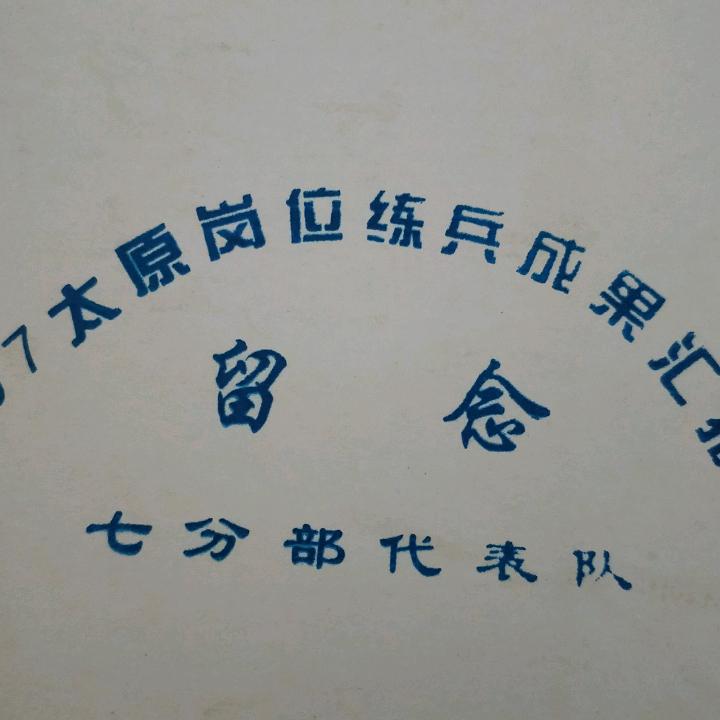 7太原岗位练兵成果汇
留念
七分部代表队